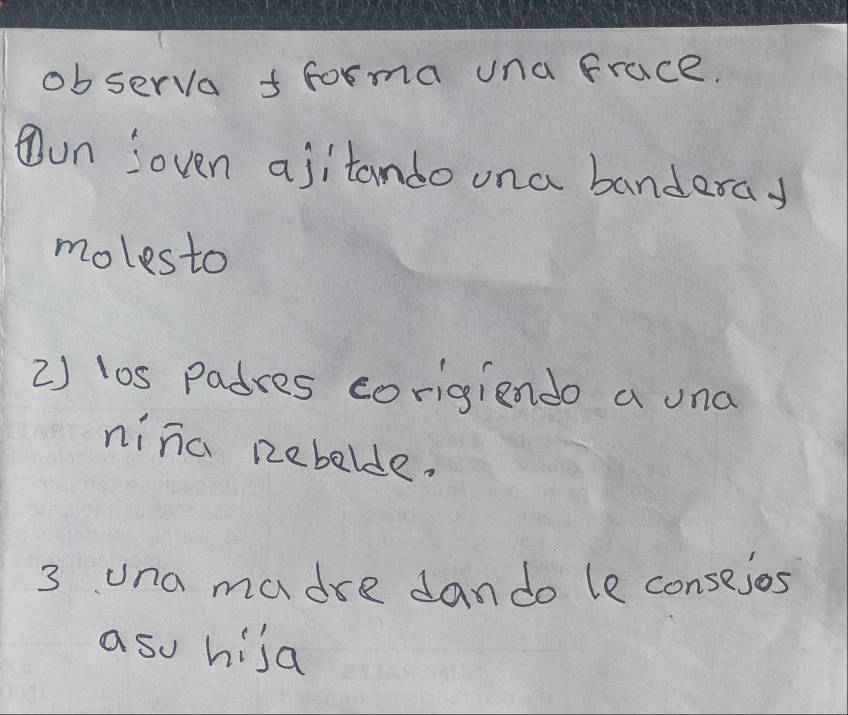 observa y forma una frace.
① un joven ajitando una bandera y
molesto
2) los Padres corigiendo a una
niña Rebelde.
3. una madre dando le consejos
asu hija